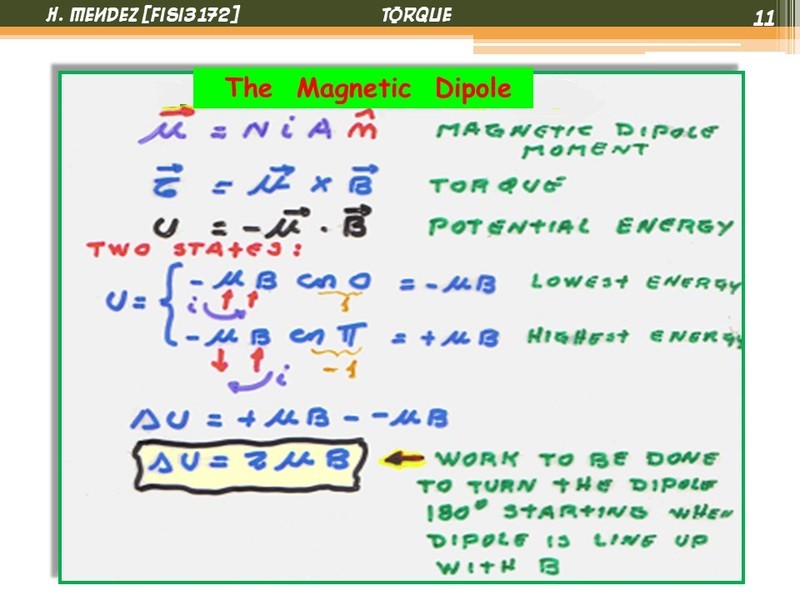 H. MENDEZ [FISI3172] TORQUE 11
The Magnetic Dipole
μ⃗ = N i A m̂ MAGNETIC DIPOLE
MOMENT
τ⃗ = μ⃗ × B⃗ TORQUE
U = -μ⃗ · B⃗ POTENTIAL ENERGY
TWO STATES:
U = { -μB cos 0 = -μB LOWEST ENERGY
i ↑ ↑ 1
-μB cos π = +μB HIGHEST ENERGY
↓ ↑ -1
i
ΔU = +μB - -μB
ΔU = 2μB ← WORK TO BE DONE
TO TURN THE DIPOLE
180° STARTING WHEN
DIPOLE IS LINE UP
WITH B